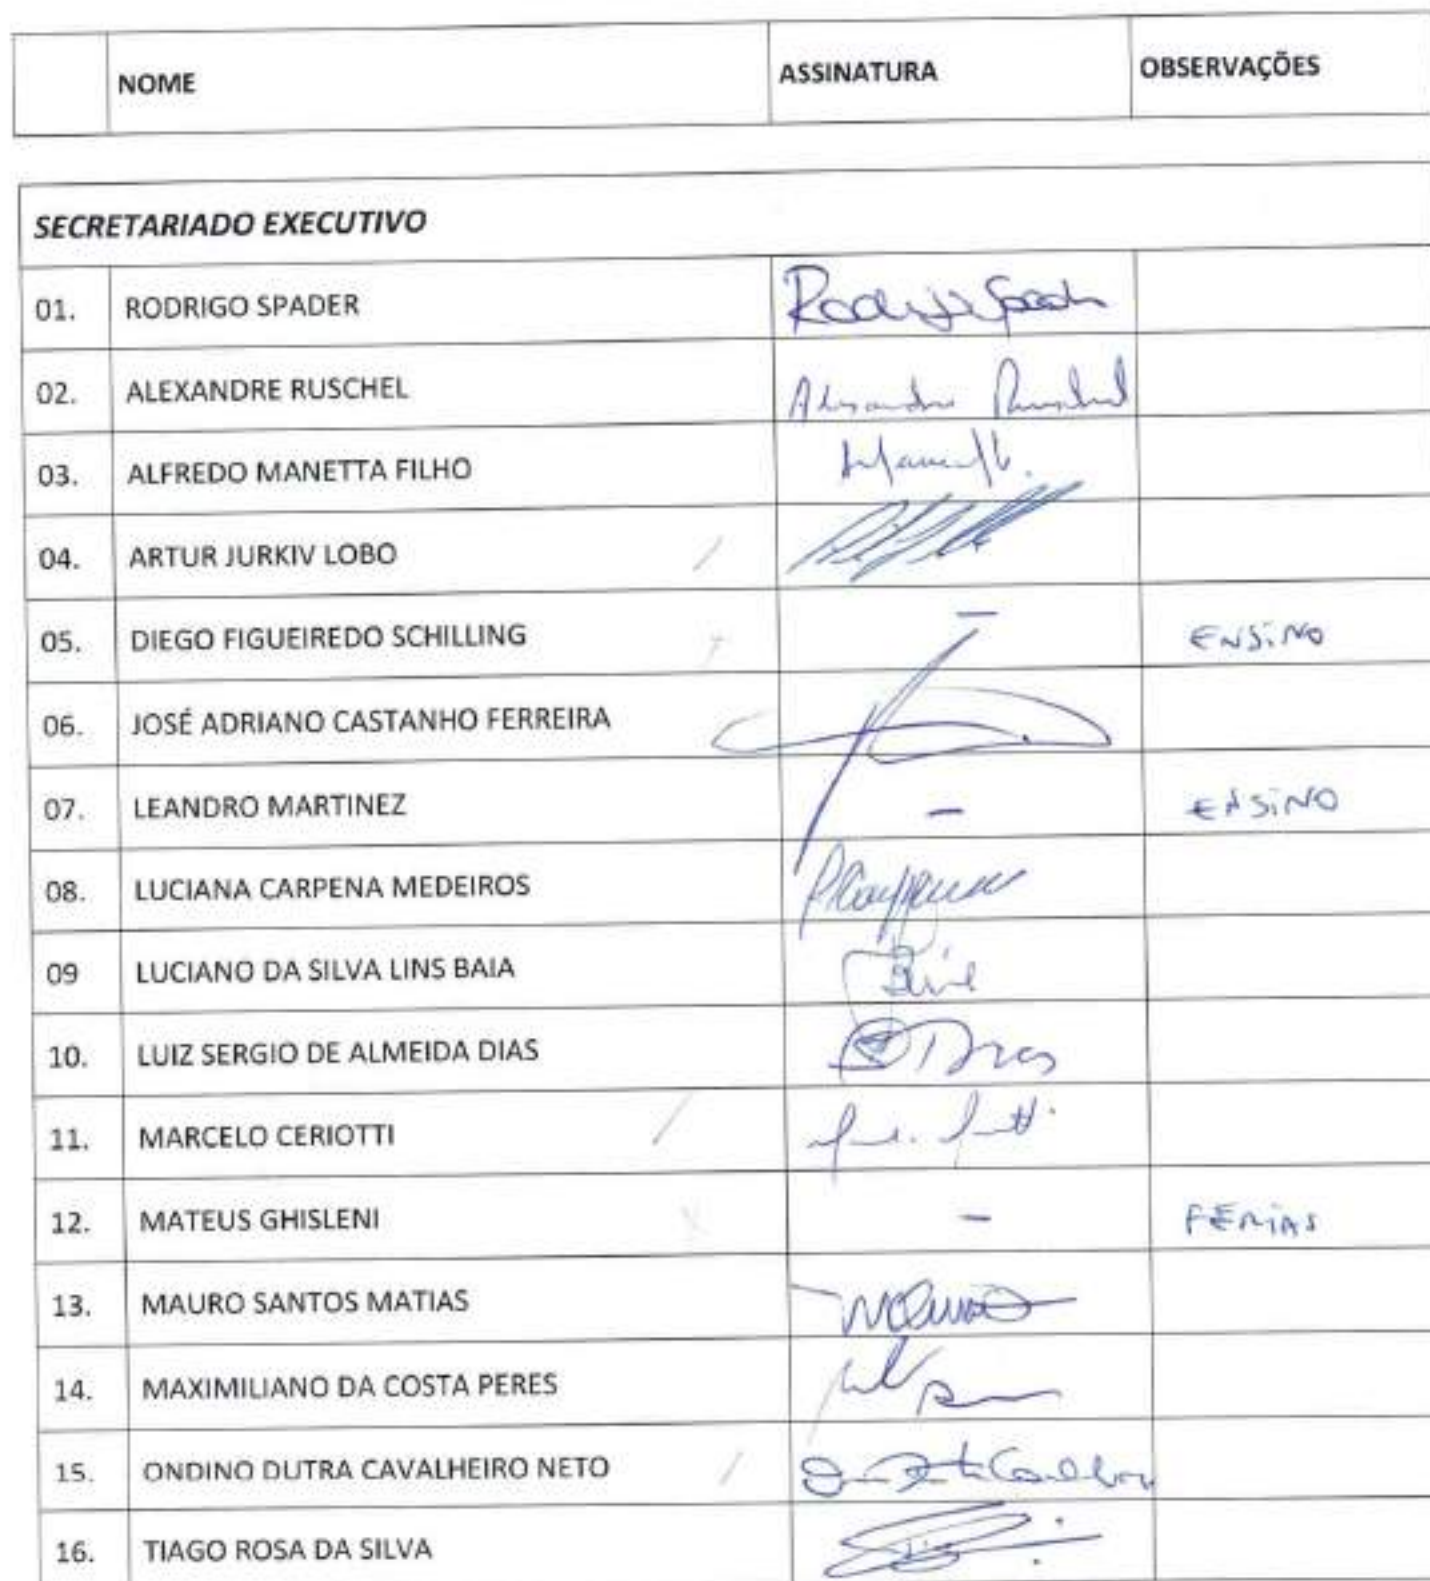 NOME ASSINATURA OBSERVAÇÕES
SECRETARIADO EXECUTIVO
01. RODRIGO SPADER Rodrigo Spader
02. ALEXANDRE RUSCHEL Alexandre Ruschel
03. ALFREDO MANETTA FILHO
04. ARTUR JURKIV LOBO
05. DIEGO FIGUEIREDO SCHILLING – ENSINO
06. JOSÉ ADRIANO CASTANHO FERREIRA
07. LEANDRO MARTINEZ – ENSINO
08. LUCIANA CARPENA MEDEIROS
09 LUCIANO DA SILVA LINS BAIA
10. LUIZ SERGIO DE ALMEIDA DIAS Dias
11. MARCELO CERIOTTI
12. MATEUS GHISLENI – FÉRIAS
13. MAURO SANTOS MATIAS
14. MAXIMILIANO DA COSTA PERES
15. ONDINO DUTRA CAVALHEIRO NETO
16. TIAGO ROSA DA SILVA